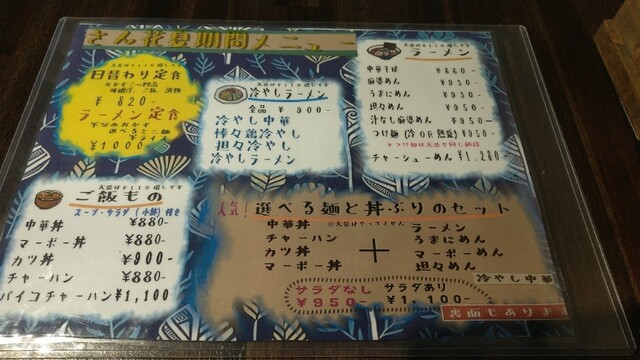 さん花夏期間メニュー
大盛は¥110増しです
日替わり定食
おかず二〜四品
味噌汁、ご飯、漬物
¥ 820-
ラーメン定食
半分のおかず
選べるミニ麺
半ライス
¥1000-
大盛は¥110増しです
冷やしラーメン
全品 ¥ 900-
冷やし中華
棒々鶏冷やし
担々冷やし
冷やしラーメン
大盛は¥110増しです
ラーメン
中華そば ¥860-
麻婆めん ¥930-
うまにめん ¥930-
担々めん ¥950-
汁なし麻婆めん ¥950-
つけ麺 (冷 OR 熱盛) ¥950-
*つけ麺は大盛で同じ値段
チャーシューめん ¥1,280-
大盛は¥110増しです
ご飯もの
スープ・サラダ (小鉢) 付き
中華丼 ¥880-
マーボー丼 ¥880-
カツ丼 ¥900-
チャーハン ¥880-
パイコチャーハン ¥1,100
人気!
選べる麺と丼ぶりのセット
※大盛はやってません
中華丼
チャーハン
カツ丼
マーボー丼
+
ラーメン
うまにめん
マーボーめん
担々めん
冷やし中華
サラダなし サラダあり
¥950- ¥1,100-
裏面もあります